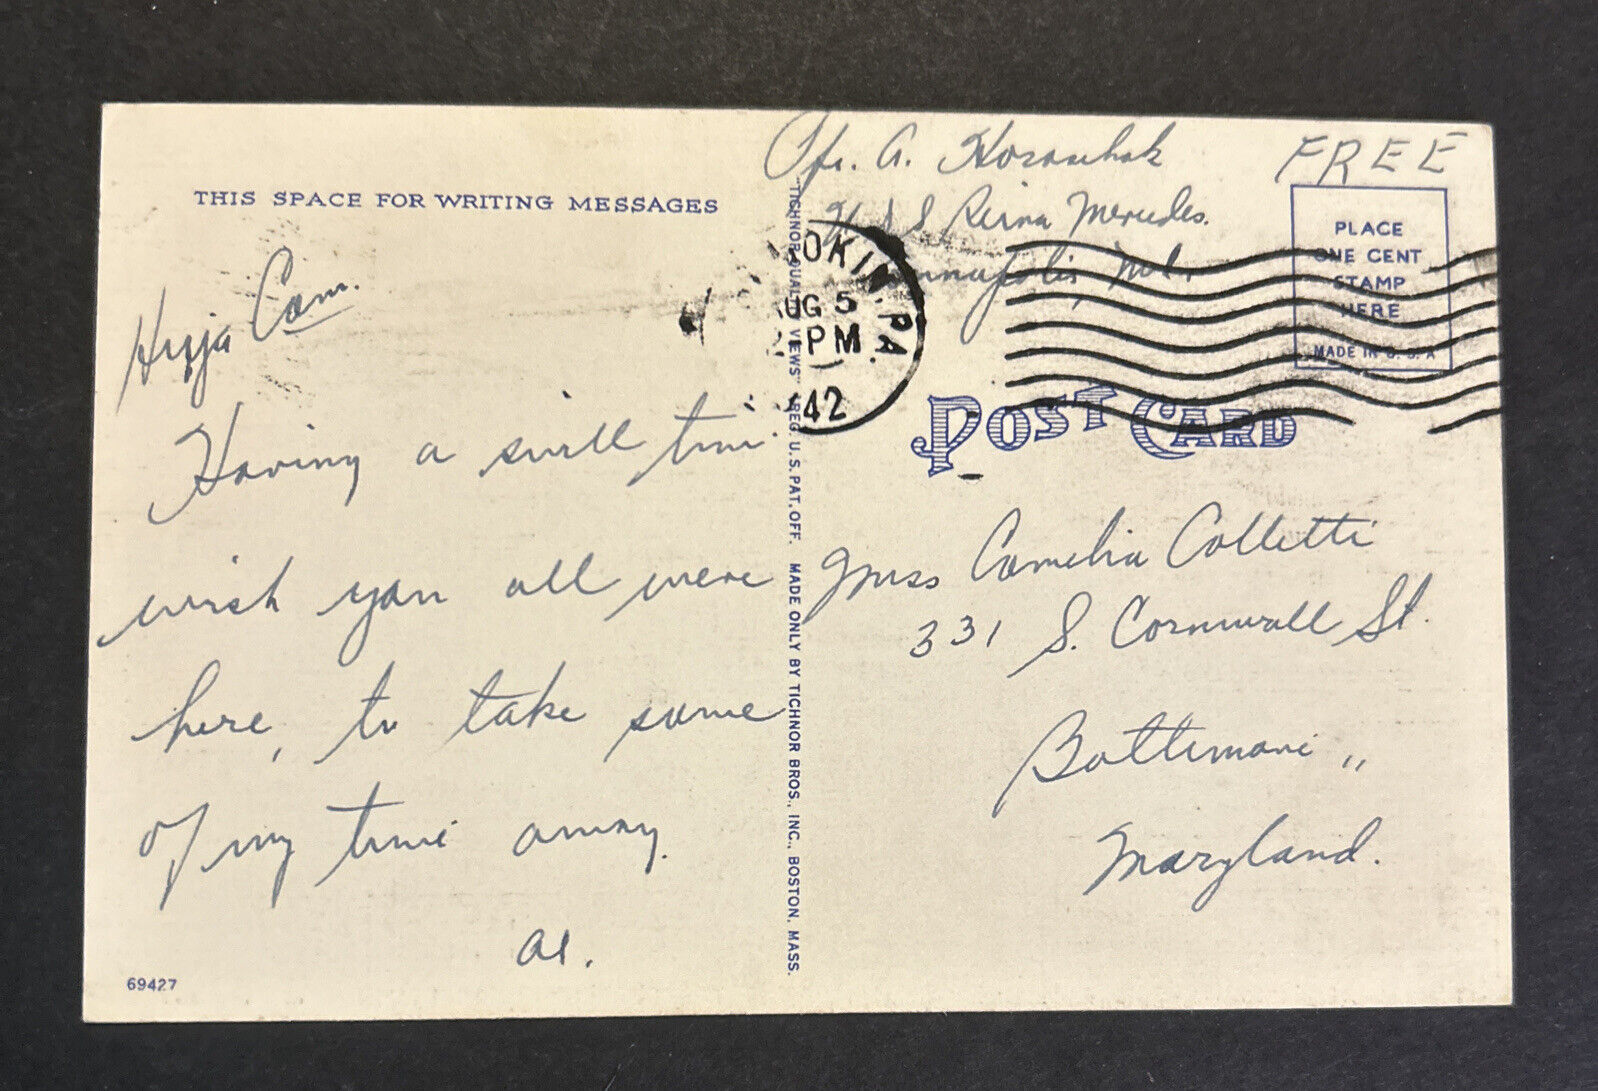 THIS SPACE FOR WRITING MESSAGES
Hiyja Cam.
Having a swell time
wish you all were
here, to take some
of my time away.
Al.
69427
"TICHNOR QUALITY VIEWS" REG. U.S. PAT. OFF. MADE ONLY BY TICHNOR BROS., INC., BOSTON, MASS.
Pfc. A.
U S S Reina Mercedes.
Annapolis, Md.
FREE
PLACE
ONE CENT
STAMP
HERE
MADE IN U.S.A
OKIN, PA.
AUG 5
PM
42
POST CARD
Miss Camelia Colletti
331 S. Cornwall St.
Baltimore "
Maryland.